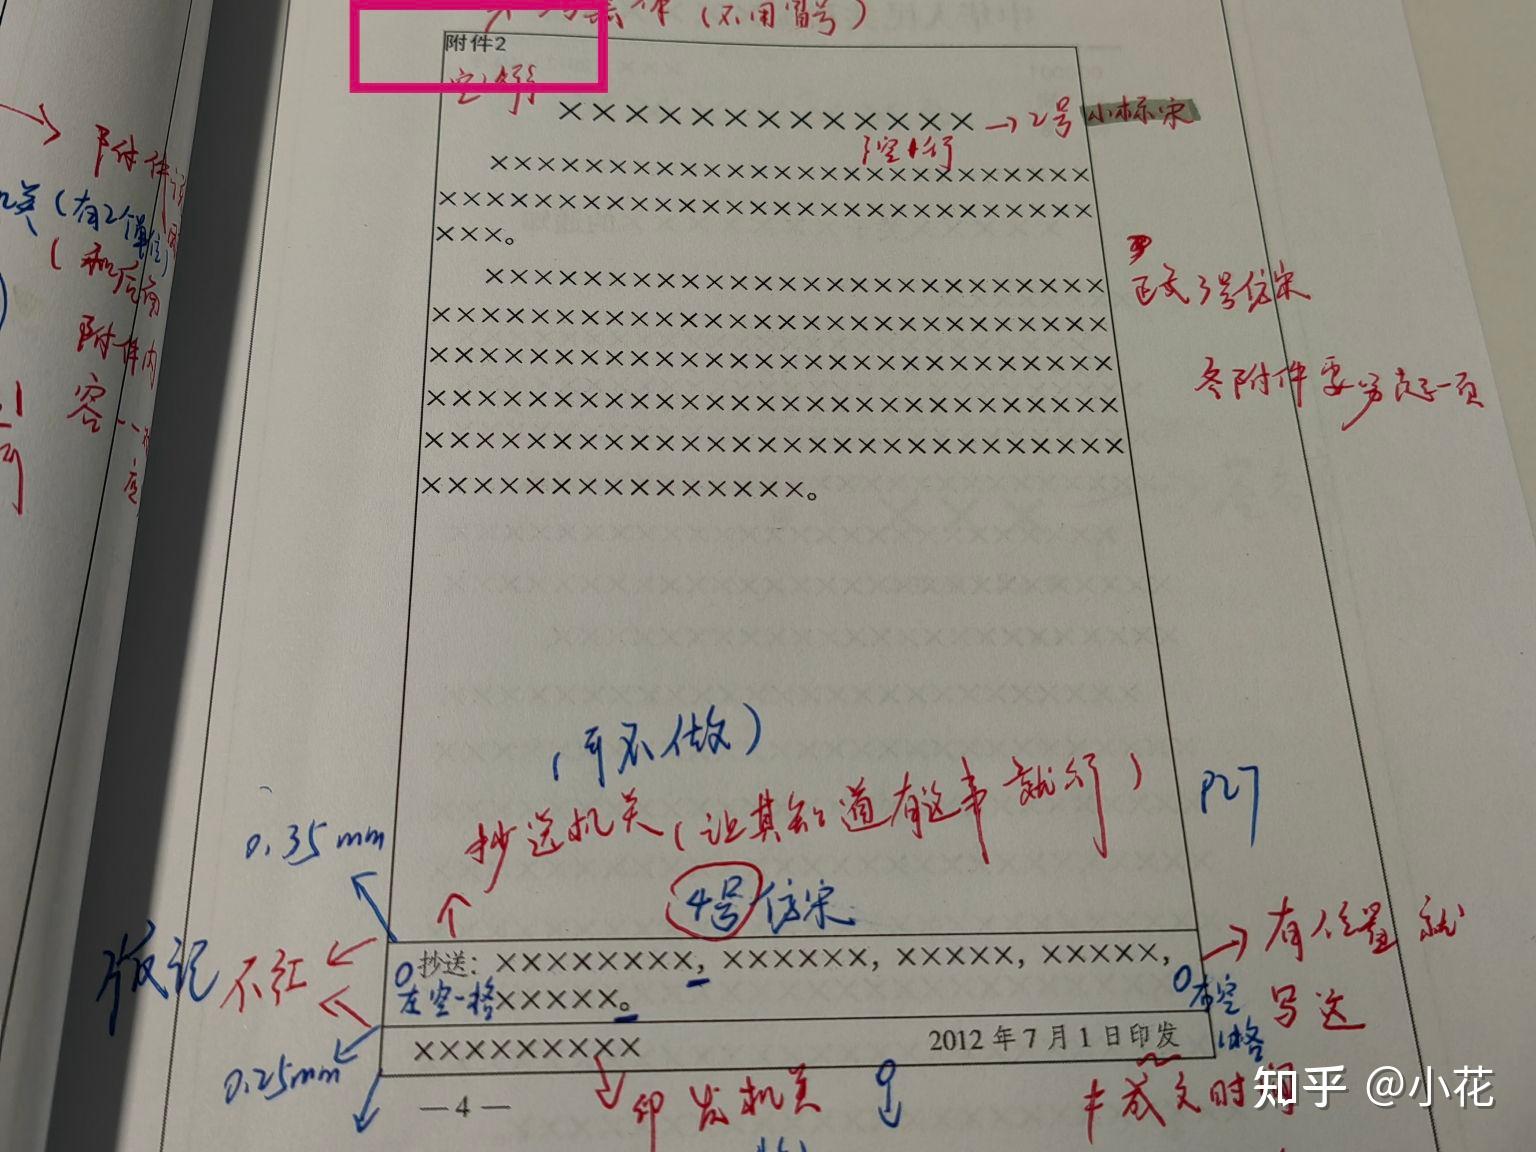 (不用冒号)
附件2
空1行
×××××××××××××
→2号小标宋
空1行
××××××××××××××××××××××××
××××××××××××××××××××××××××
×××。
×××××××××××××××××××××××××
×××××××××××××××××××××××××××
×××××××××××××××××××××××××××
×××××××××××××××××××××××××××
×××××××××××××××××××××××××××
×××××××××××××××。
正文3号仿宋
各附件要另起一页
附件
机关(有2个单位)
(和后面
附件内
容一致
(可不做)
抄送机关(让其知道有这事就行)
P27
0.35mm
4号仿宋
版记
不红
抄送：××××××××，××××××，×××××，×××××，
左空一格
×××××。
右空
1格
有位置就
写这
×××××××××
2012年7月1日印发
0.25mm
—4—
印发机关
≠成文时间
知乎 @小花